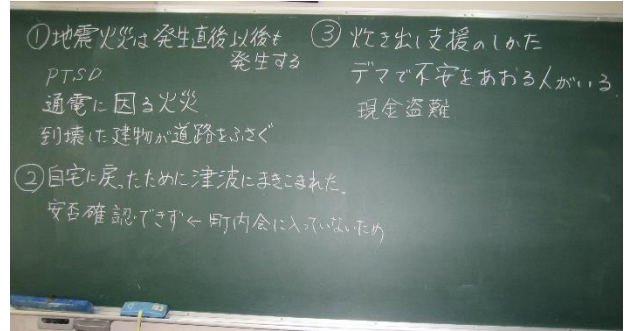 ①地震火災は発生直後以後も
発生する
PTSD
通電に因る火災
到壊した建物が道路をふさぐ
②自宅に戻ったために津波にまきこまれた。
安否確認できず←町内会に入っていないため
③炊き出し支援のしかた
デマで不安をあおる人がいる
現金盗難